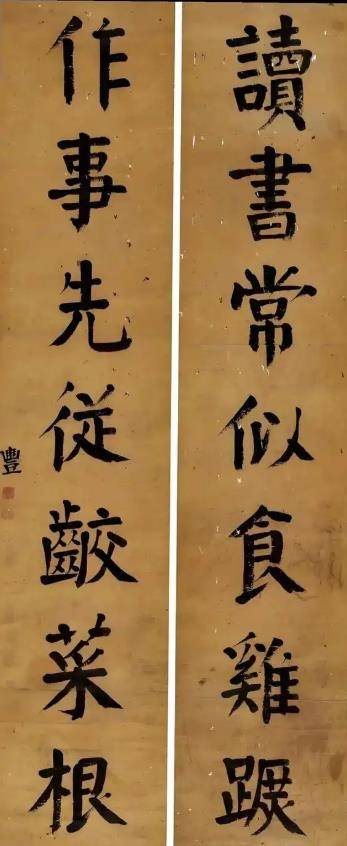 讀書常似食雞蹠
作事先従齩菜根
豐